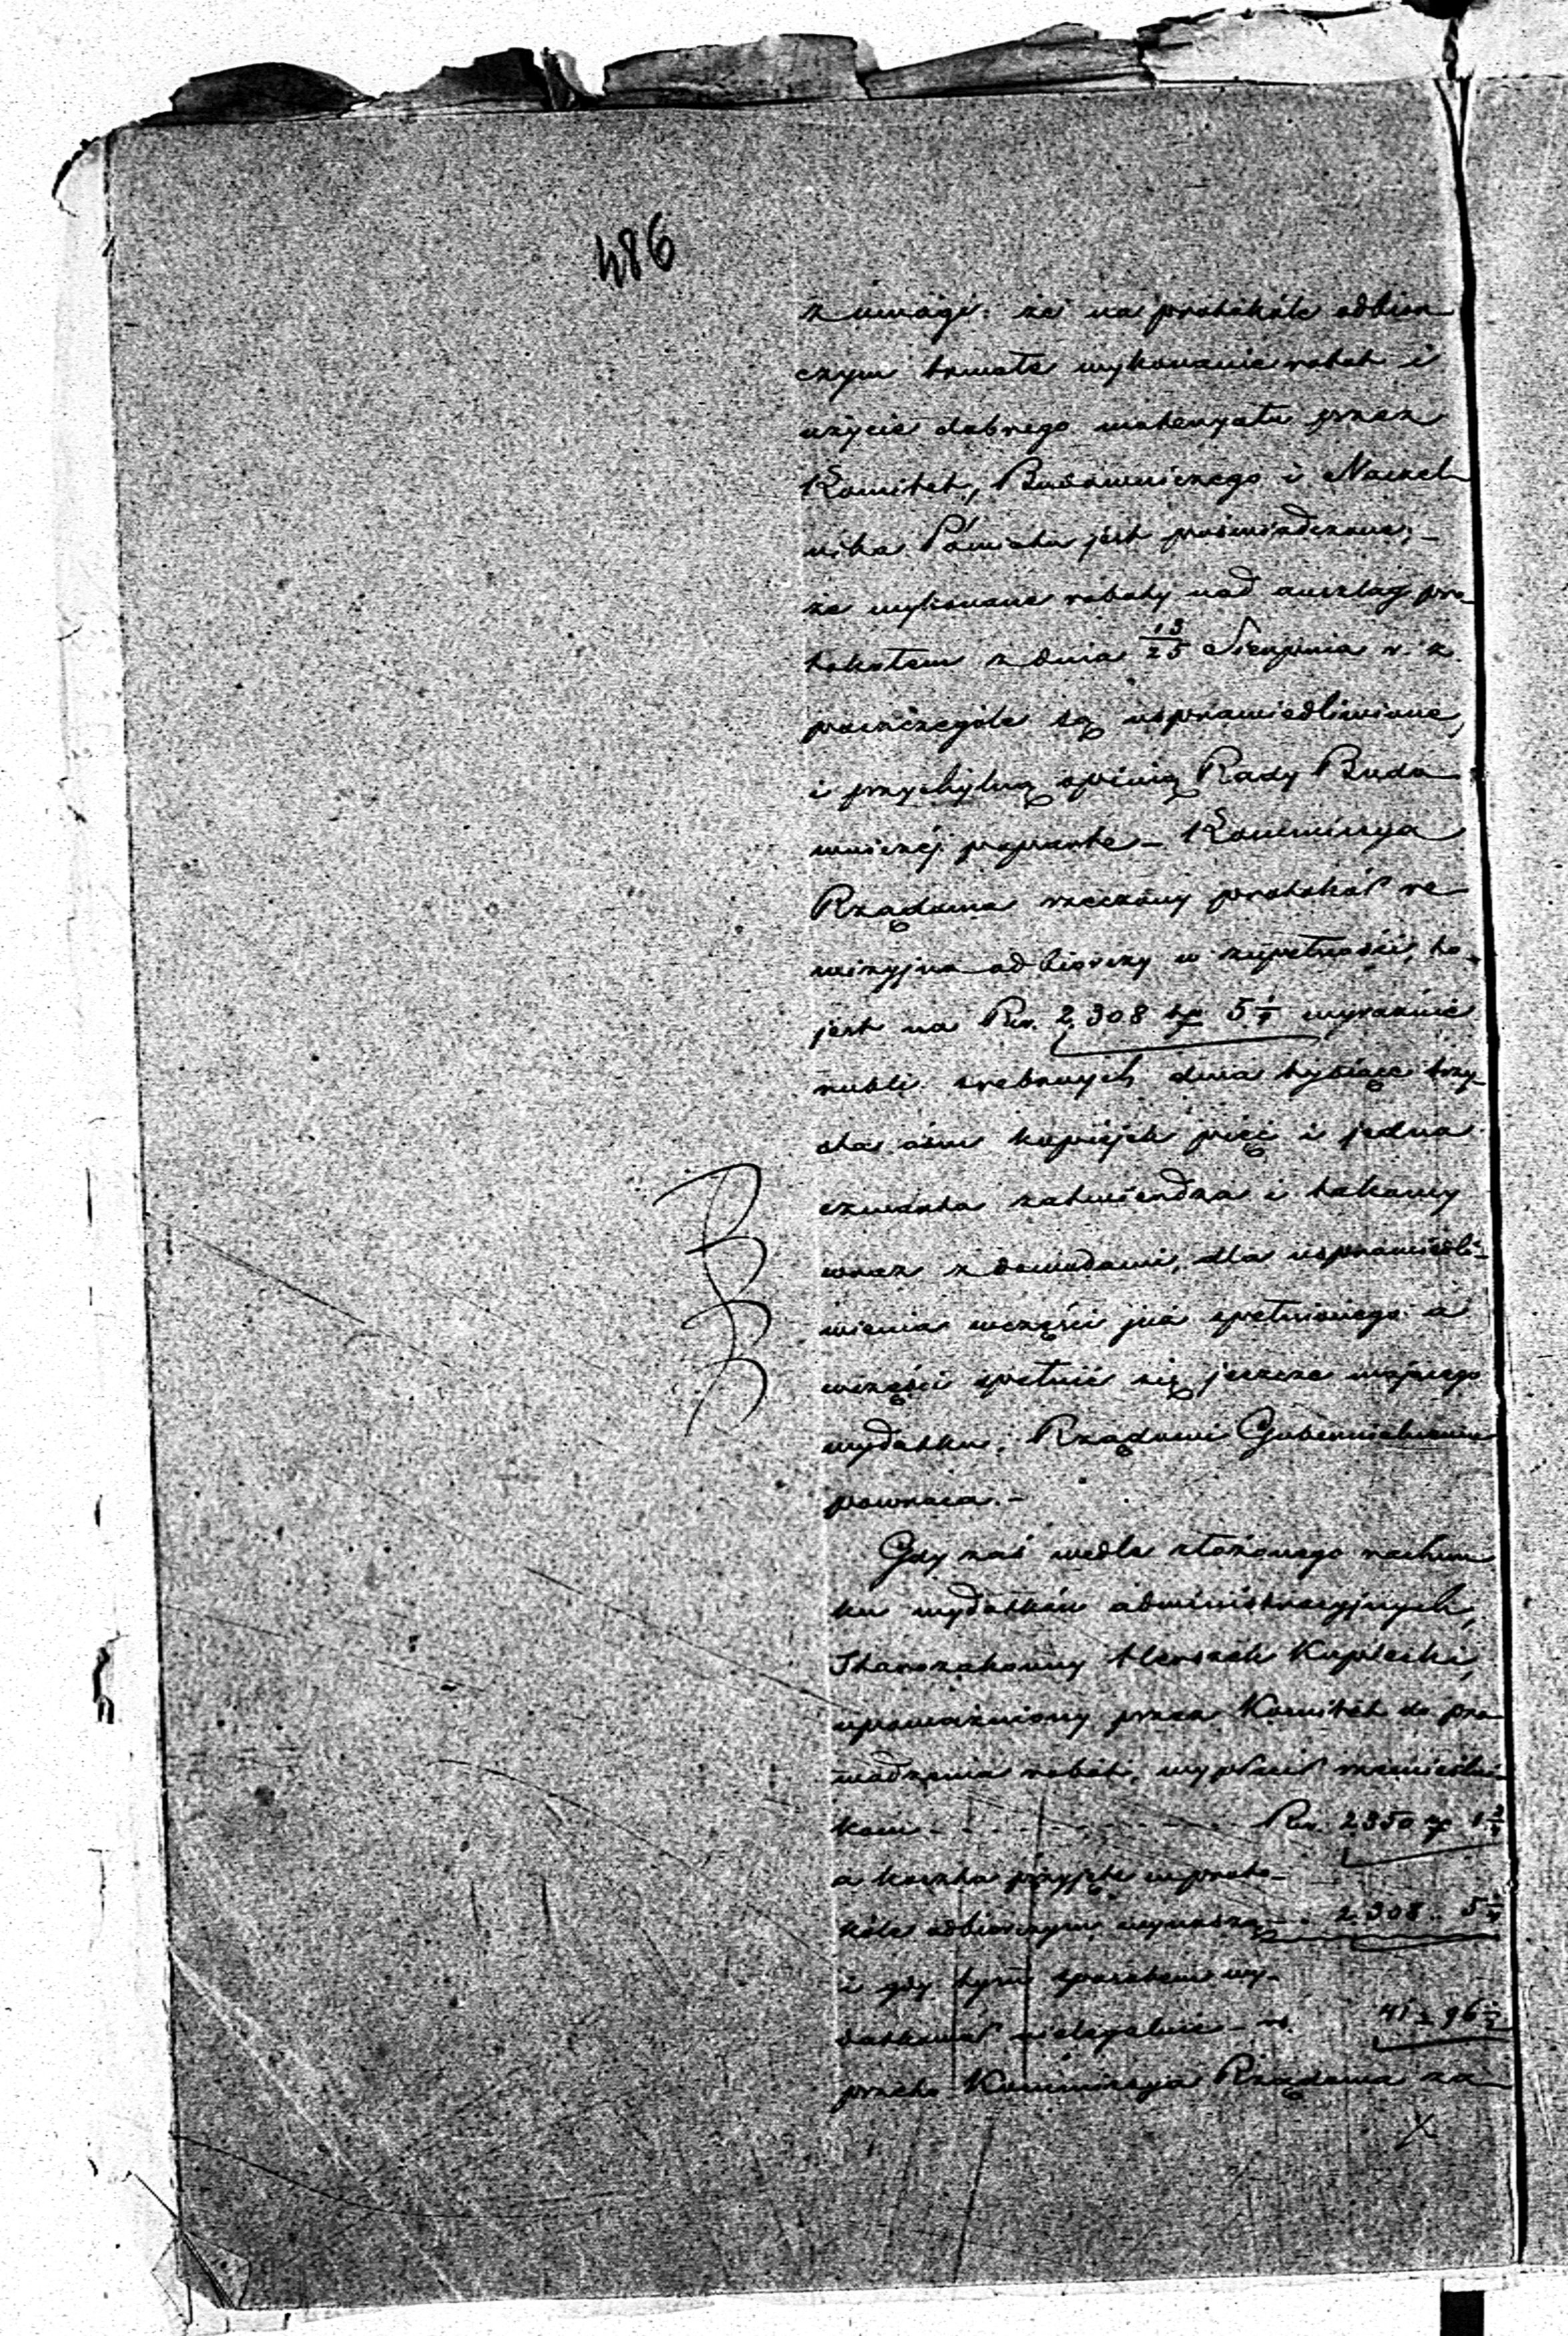 486
z uwagi: że na protokóle odbior
czym trwałe wykonanie robot i
użycie dobrego materyału przez
Komitet, Budowniczego i Naczel
nika Powiatu jest poświadczone; –
że wykonane roboty nad anszlag pro-
tokółem z dnia 13/25 Sierpnia r. z.
poszczególe są usprawiedliwione,
i przychylną opinią Rady Budo
wniczéj poparte – Kommissya
Rządowa rzeczony protokół re
wizyjno odbiorczy w zupełności, to
jest na Rsr. 2,308 kop 5 1/4 wyraźnie
rubli srebrnych dwa tysiące trzy-
sta ośm kopiejek pięć i jedna
czwarta zatwierdza i takowy
wraz z dowodami, dla usprawiedli-
wienia wczęści już spełnionego a
wczęści spełnić się jeszcze mającego
wydatku, Rządowi Gubernialnemu
powraca. –
Gdy zaś wedle złożonego rachun
ku wydatków administracyjnych,
Starozakonny Herszek Kupiecki,
upoważniony przez Komitet do pro
wadzenia robót, wypłacił rzemieślni-
kom - - - - - - - - Rsr. 2350 kop 1 3/4
a koszta przyjęte wproto-
kóle odbiorczym wynoszą – . 2,308 .. 5 1/4
i gdy tym sposobem wy-
datkował nielegalnie – rs. 41 – 96 1/2
przeto Kommissya Rządowa za